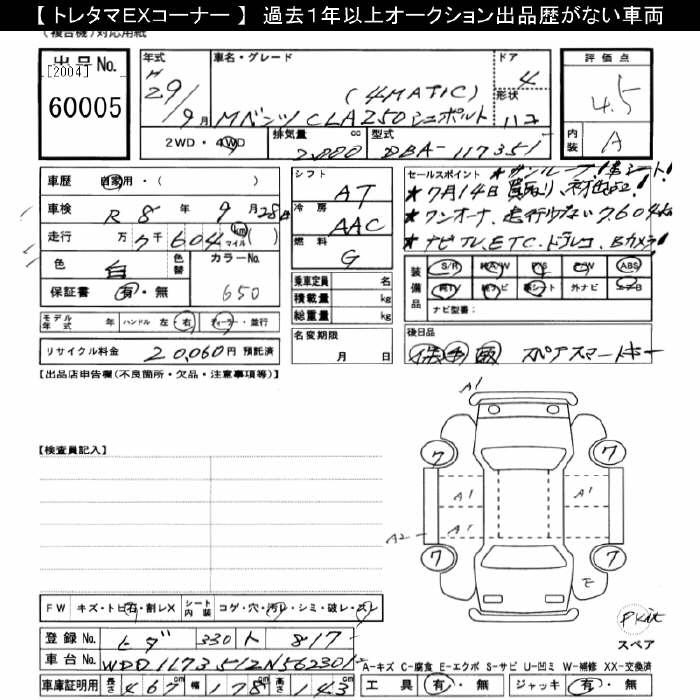 【 トレタマEXコーナー 】 過去１年以上オークション出品歴がない車両
(複合機)対応用紙
出品No.
[2004]
60005
年式
H
29/9月
車名・グレード
(4MATIC)
Mベンツ CLA250シュポルト
ドア
4
形状
評価点
4.5
内装
A
2WD・4WD
排気量
cc
2,000
型式
DBA-117351
車歴
自家用・( )
車検
R 8 年 9 月 28日
走行
万 7 千 604 km マイル ( )
色
白
色替
カラーNo.
650
保証書
有・無
モデル年式
年
ハンドル 左・右
ディーラー・並行
リサイクル料金
20,060円 預託済
シフト
AT
冷房
AAC
燃料
G
乗車定員
名
積載量
kg
総重量
kg
名変期限
月 日
セールスポイント
★サンルーフ!革シート!
★7月14日買取り、初出品!
★ワンオーナ、走行少ない7,604km
★ナビTV、ETC、ドラレコ、Bカメラ!
装備品
S/R 純A/W P/S P/W ABS
純TV 純ナビ 革シート 外ナビ エアB
ナビ型番：
後日品
保 手 取 スペアスマートキー
【出品店申告欄(不良箇所・欠品・注意事項等)】
【検査員記入】
A1
7
7
A1
A1
A2
A1
7
7
E
Pkit
スペア
FW
キズ・トビ石・割レX
シート内装
コゲ・穴・汚レ・シミ・破レ・スレ
登録 No.
330
ト
817
車台 No.
WDD1173512N562301
車庫証明用
長さ
467
cm
幅
178
cm
高さ
143
cm
A-キズ C-腐食 E-エクボ S-サビ U-凹ミ W-補修 XX-交換済
工具
有・無
ジャッキ
有・無